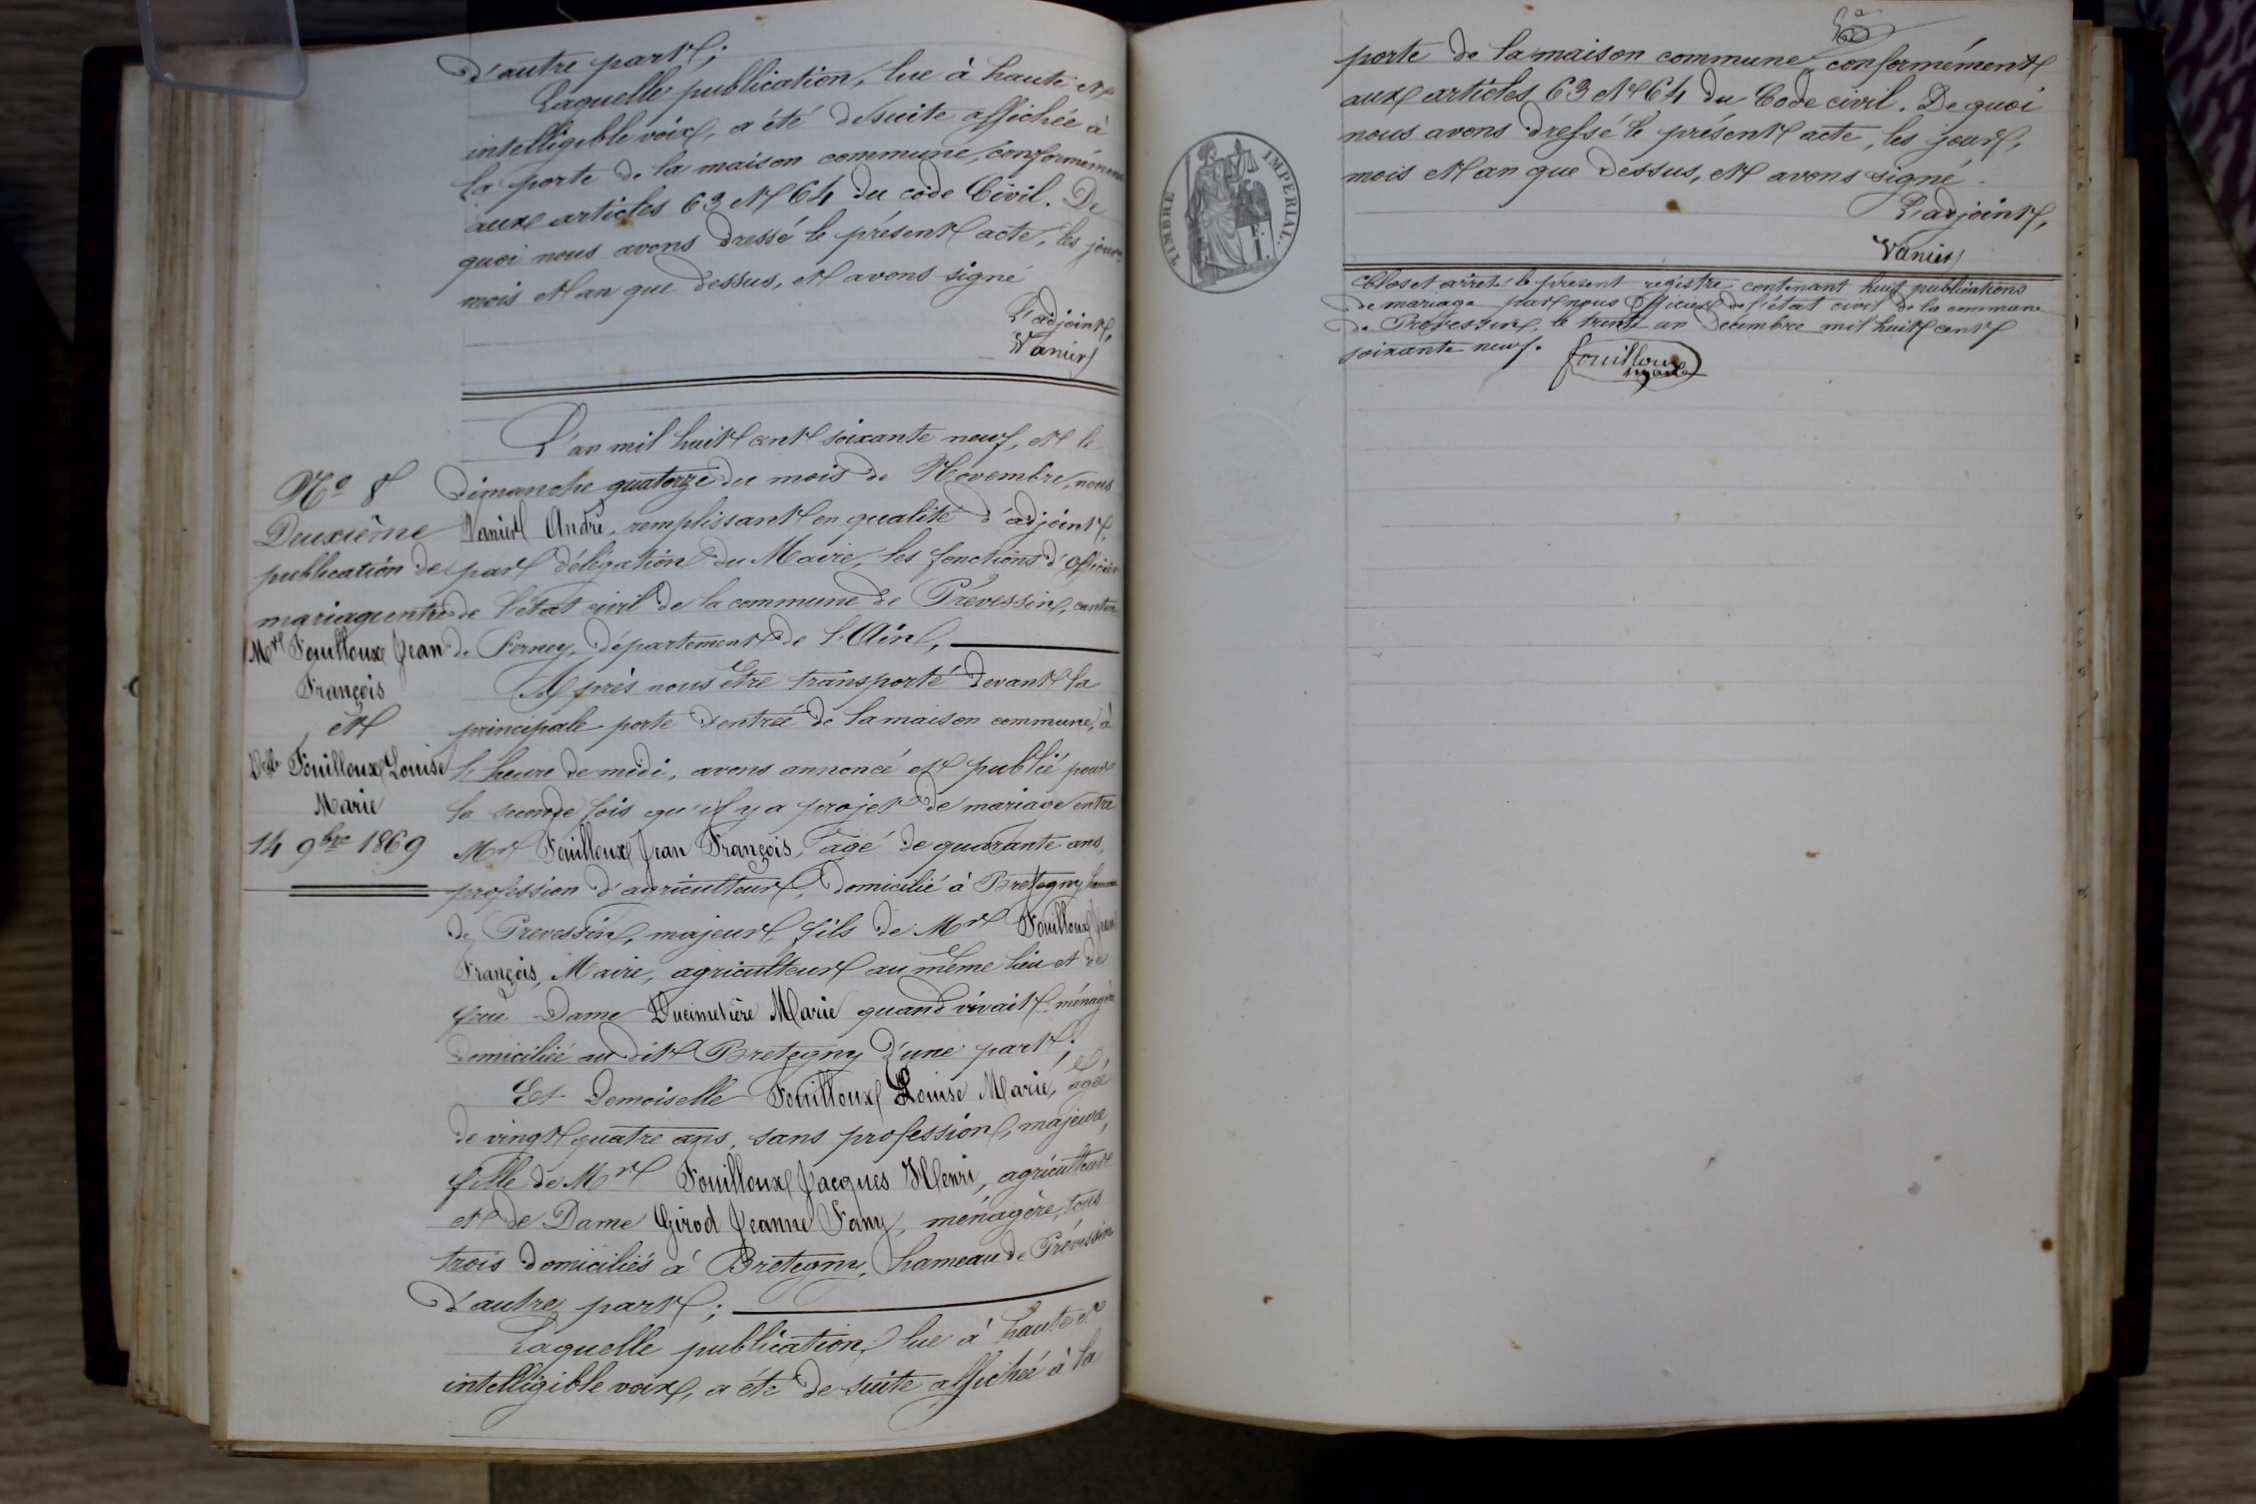 d'autre part;
Laquelle publication, lue à haute et
intelligible voix, a été desuite affichée à
la porte de la maison commune, conformément
aux articles 63 et 64 du code Civil. De
quoi nous avons dressé le présent acte, les jour,
mois et an que dessus, et avons signé
L'adjoint,
Vanier
L'an mil huit cent soixante neuf, et le
dimanche quatorze du mois de Novembre, nous
Vanier André, remplissant en qualité d'adjoint,
par délégation du Maire, les fonctions d'officier
de l'état civil de la commune de Prévessin, canton
de Ferney, département de l'Ain,
Après nous être transporté devant la
principale porte d'entrée de la maison commune, à
l'heure de midi, avons annoncé et publié pour
la seconde fois qu'il y a projet de mariage entre
Mr Fouilloux Jean François, âgé de quarante ans,
profession d'agriculteur, domicilié à Bretegny
de Prevessin, majeur, fils de Mr Fouilloux Jean
François, Maire, agriculteur au même lieu et de
feue Dame Ducimetière Marie quand vivait ménagère
domiciliée au dit Bretegny d'une part;
Et Demoiselle Fouilloux Louise Marie, âgée
de vingt quatre ans, sans profession, majeure,
fille de Mr Fouilloux Jacques Henri, agriculteur
et de Dame Girod Jeanne Fany, ménagère, tous
trois domiciliés à Bretegny, hameau de Prévessin
d'autre part;
Laquelle publication, lue à haute et
intelligible voix, a été de suite affichée à la
No 8
Deuxième
publication de
mariage entre
Mr Fouilloux Jean
François
et
Delle Fouilloux Louise
Marie
14 9bre 1869
porte de la maison commune, conformément
aux articles 63 et 64 du Code civil. De quoi
nous avons dressé le présent acte, les jour,
mois et an que dessus, et avons signé.
L'adjoint,
Vanier
TIMBRE IMPERIAL.
Clos et arrêté le présent registre contenant huit publications
de mariage par nous Officier de l'état civil de la commune
de Prévessin, le trente un Décembre mil huit cent
soixante neuf. fouilloux